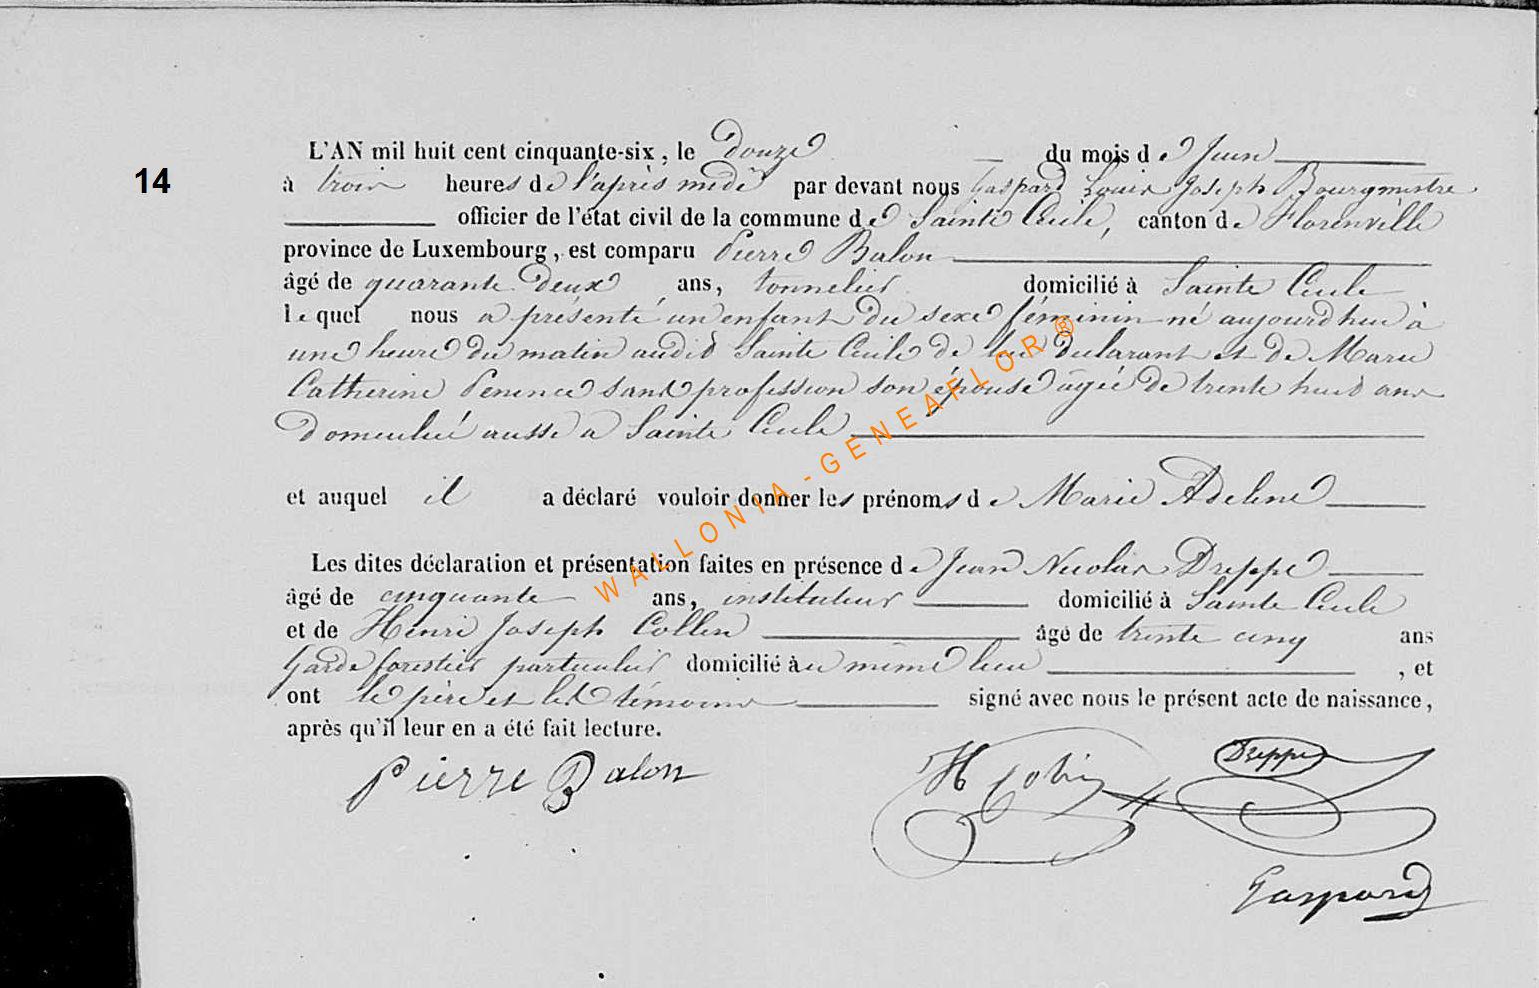 14
L'AN mil huit cent cinquante-six, le douze du mois de Juin
à trois heures de l'après midi par devant nous Gaspard Louis Joseph Bourgmestre
officier de l'état civil de la commune de Sainte Cecile, canton de Florenville
province de Luxembourg, est comparu Pierre Balon
âgé de quarante deux ans, tonnelier domicilié à Sainte Cecile
lequel nous a présenté un enfant du sexe féminin né aujourd'hui à
une heure du matin audit Sainte Cecile de lui déclarant et de Marie
Catherine sans profession son épouse âgée de trente huit ans
domiciliée aussi a Sainte Cecile
et auquel il a déclaré vouloir donner les prénoms de Marie Adeline
Les dites déclaration et présentation faites en présence de Jean Nicolas Dreppe
âgé de cinquante ans, instituteur domicilié à Sainte Cecile
et de Henri Joseph Collin âgé de trente cinq ans
Garde forestier particulier domicilié au même lieu, et
ont le père et les témoins signé avec nous le présent acte de naissance,
après qu'il leur en a été fait lecture.
Pierre Balon
Dreppe
Gaspard
WALLONIA-GENEAFLOR ®